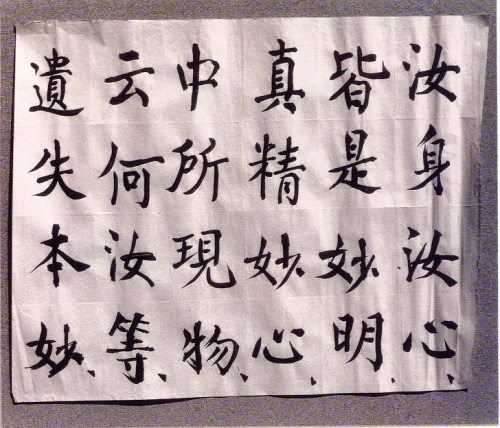 汝身汝心、
皆是妙明、
真精妙心、
中所現物、
云何汝等、
遺失本妙、